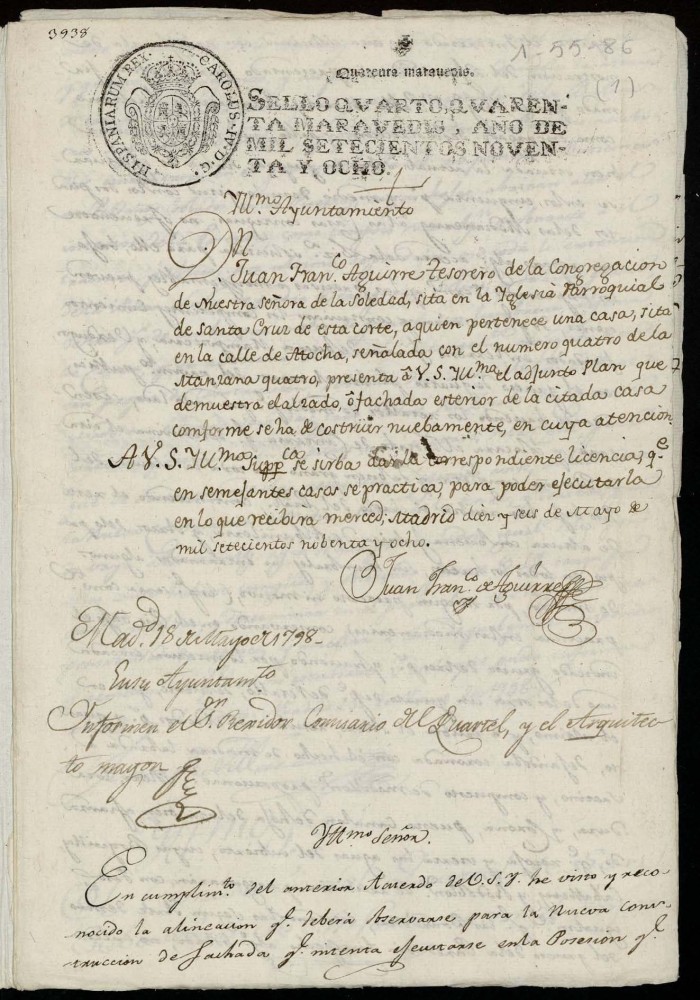 3938
1-55-86
(1)
HISPANIARUM REX. CAROLUS. IV. D. G.
Quarenta maravedis.
SELLO QVARTO, QVAREN-
TA MARAVEDIS, AÑO DE
MIL SETECIENTOS NOVEN-
TA Y OCHO.
Yll.mo Ayuntamiento
Dn
Juan Fran.co Aguirre Tesorero de la Congregacion
de Nuestra señora de la Soledad, sita en la Yglesia Parroquial
de Santa Cruz de esta corte, a quien pertenece una casa, sita
en la calle de Atocha, señalada con el numero quatro de la
Manzana quatro, presenta â V. S. Yll.ma el adjunto Plan que
demuestra el alzado, ô fachada esterior de la citada casa
comforme se ha de costruir nuebamente, en cuya atencion
A V. S. Yll.ma Supp.ca se sirba dar la correspondiente licencia, q.e
en semejantes casos se practica, para poder ejecutarla
en lo que recibirá merced, Madrid diez y seis de Mayo de
mil setecientos nobenta y ocho.
Juan Fran.co de Aguirre
Mad.d 18 de Mayo de 1798
En su Ayuntam.to
Informen el S.or Rexidor Comisario del Quartel, y el Arquitec
to mayor
Yll.mo Señor.
En cumplim.to del anterior Acuerdo de V. S. Y. he visto y reco-
nocido la alineacion q.e deberá observarse para la Nueva Cons-
truccion de fachada q.e intenta ejecutarse en la Posesion q.e